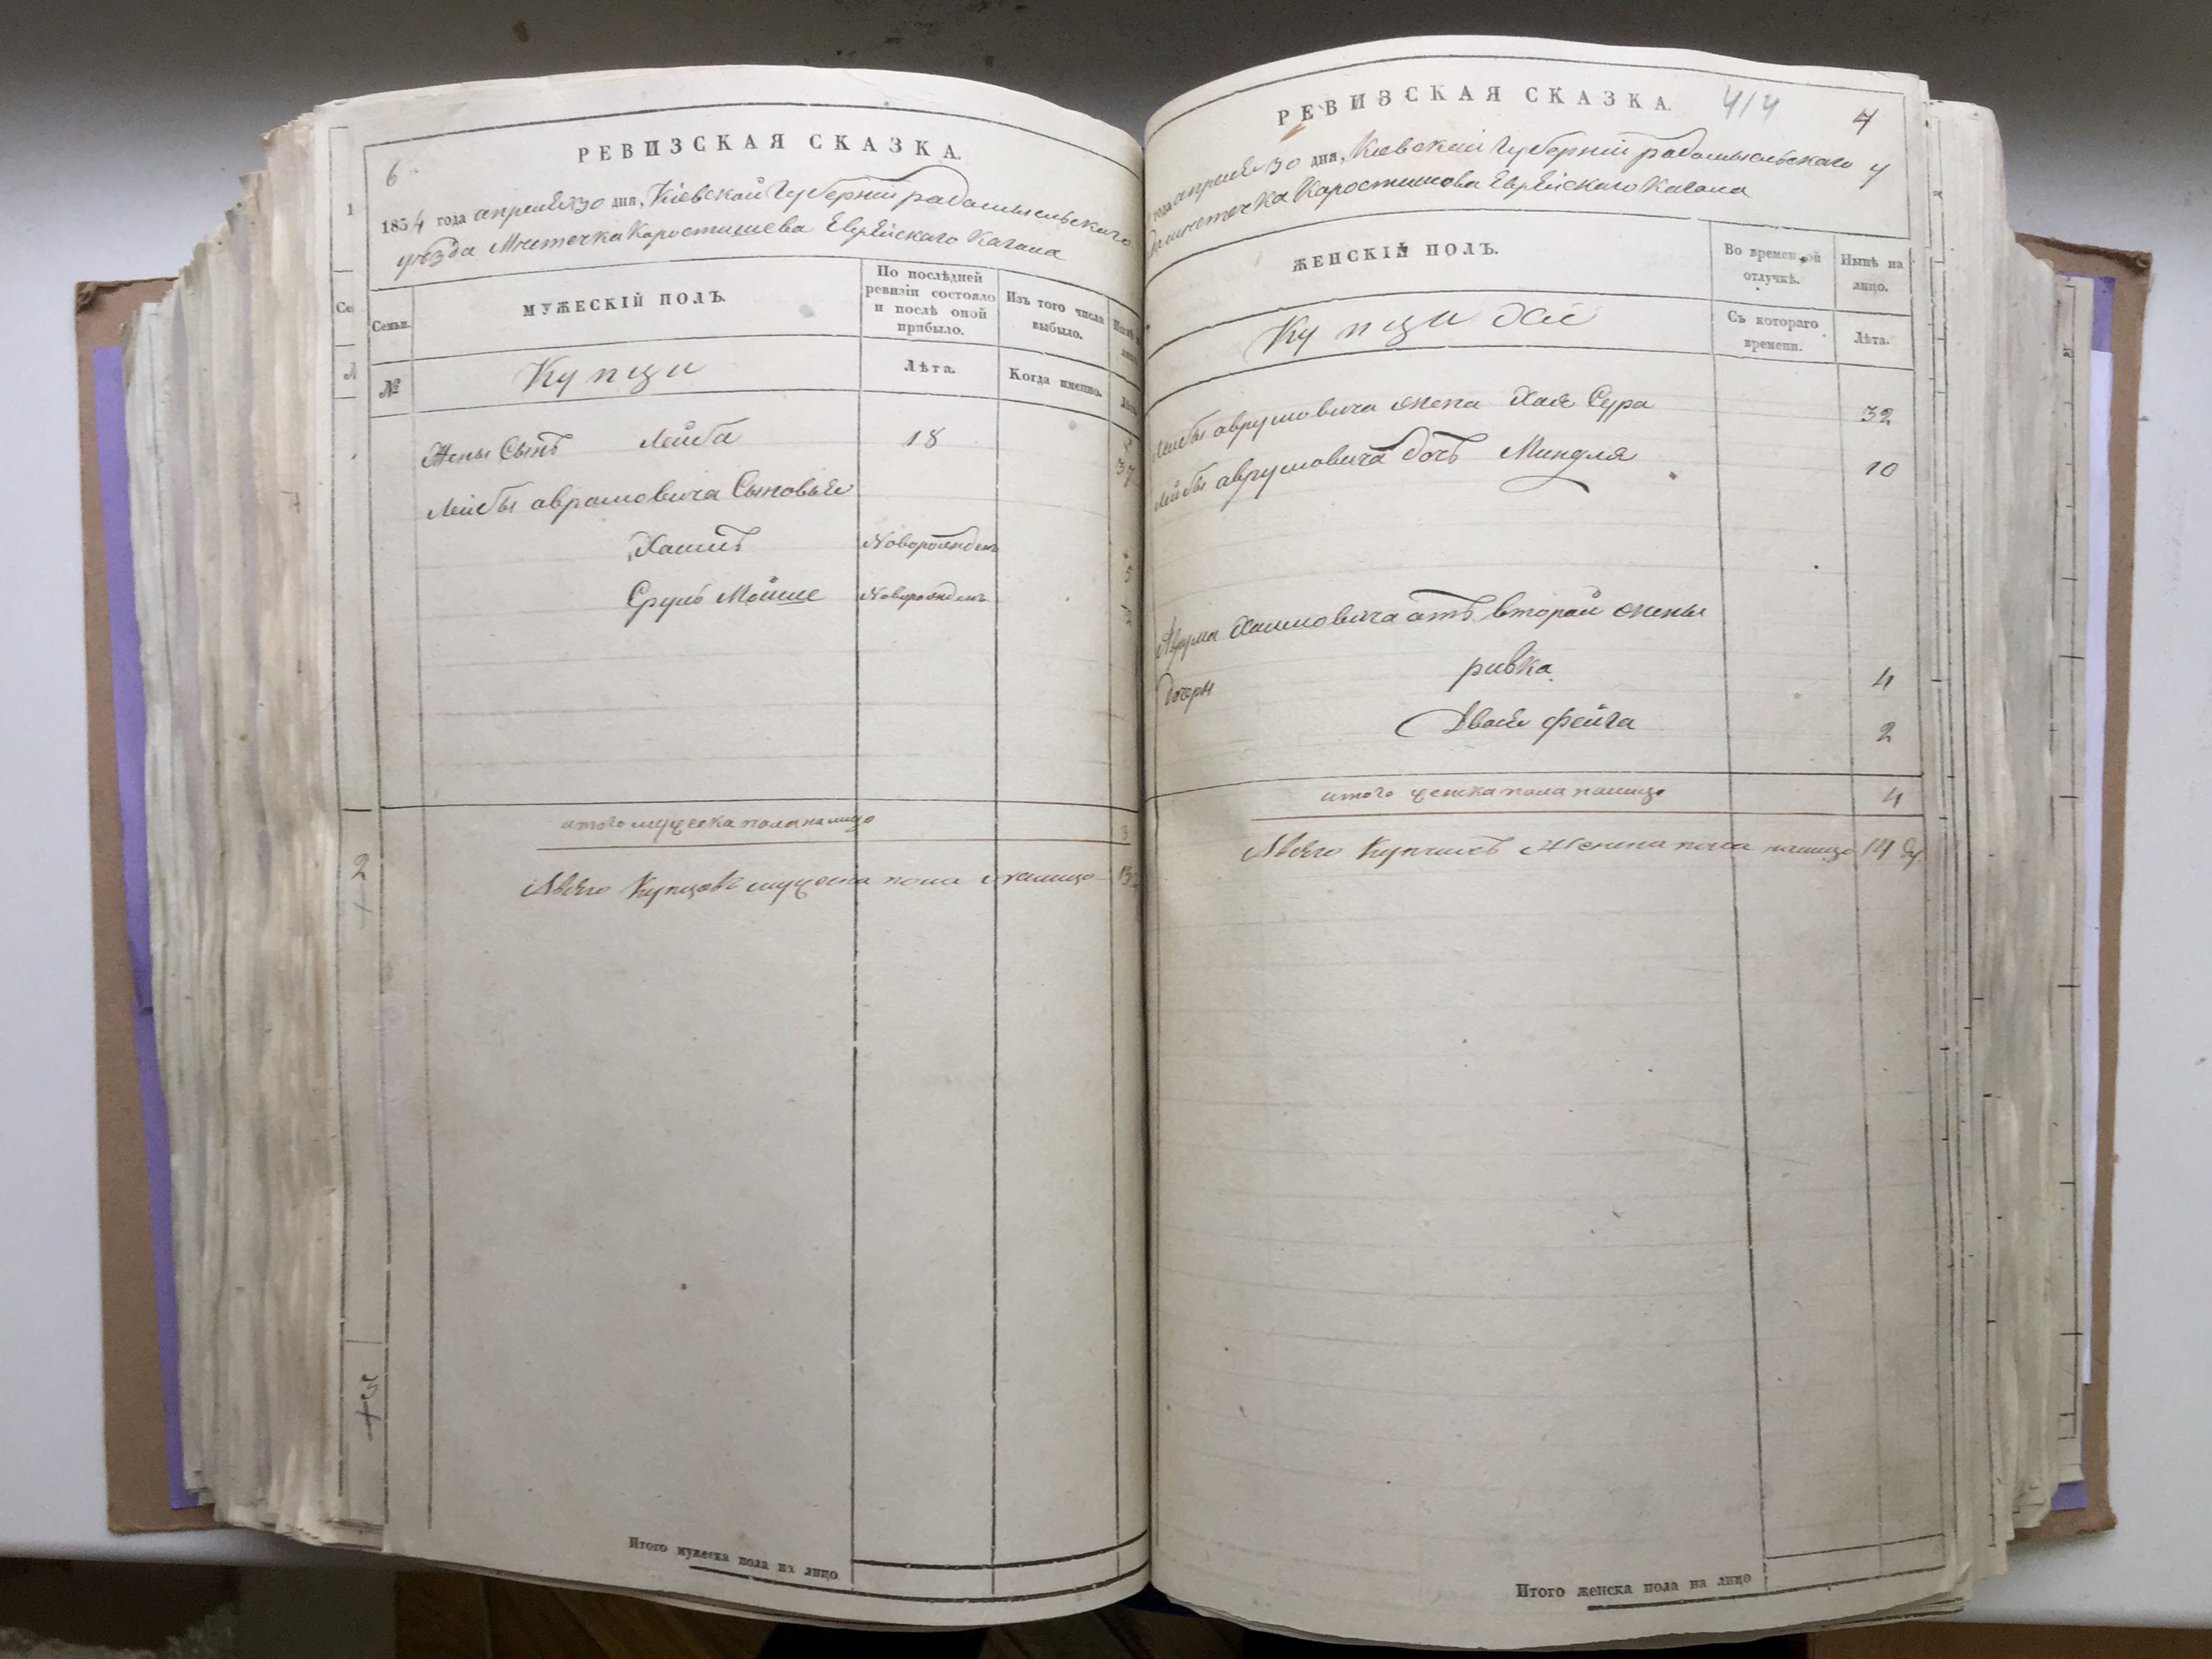 6
РЕВИЗСКАЯ СКАЗКА.
1854 года апреля 30 дня, Кіевской Губерніи радомысльского
уѣзда Мистечка Коростишева Еврейскаго Кагала
Семьи.
МУЖЕСКІЙ ПОЛЪ.
По послѣдней ревизіи состояло и послѣ оной прибыло.
Изъ того числа выбыло.
№
Купци
Лѣта.
Когда именно.
Жены Сынъ Лейба 18 37
Лейбы аврамовича Сыновья
Хаимъ Новорожден 5
Сруль Мойше Новорожден
итого мужеска пола на лицо 3
Всего Купцовъ мужеска пола налицо 13
2
Итого мужеска пола на лицо
РЕВИЗСКАЯ СКАЗКА.
414
7
года апреля 30 дня, Кіевской Губерніи радомысльского у
мистечка Коростишова Еврейскаго Кагала
ЖЕНСКІЙ ПОЛЪ.
Во временной отлучкѣ.
Нынѣ на лицо.
Съ котораго времени.
Лѣта.
Лейбы аврумовича жена Хая Сура 32
Лейбы аврумовича дочь Миндля 10
Аврума Хаимовича отъ второй жены
дочеры ривка 4
Двося фейга 2
итого женска пола налицо 4
Всего женска пола налицо 14
Итого женска пола на лицо